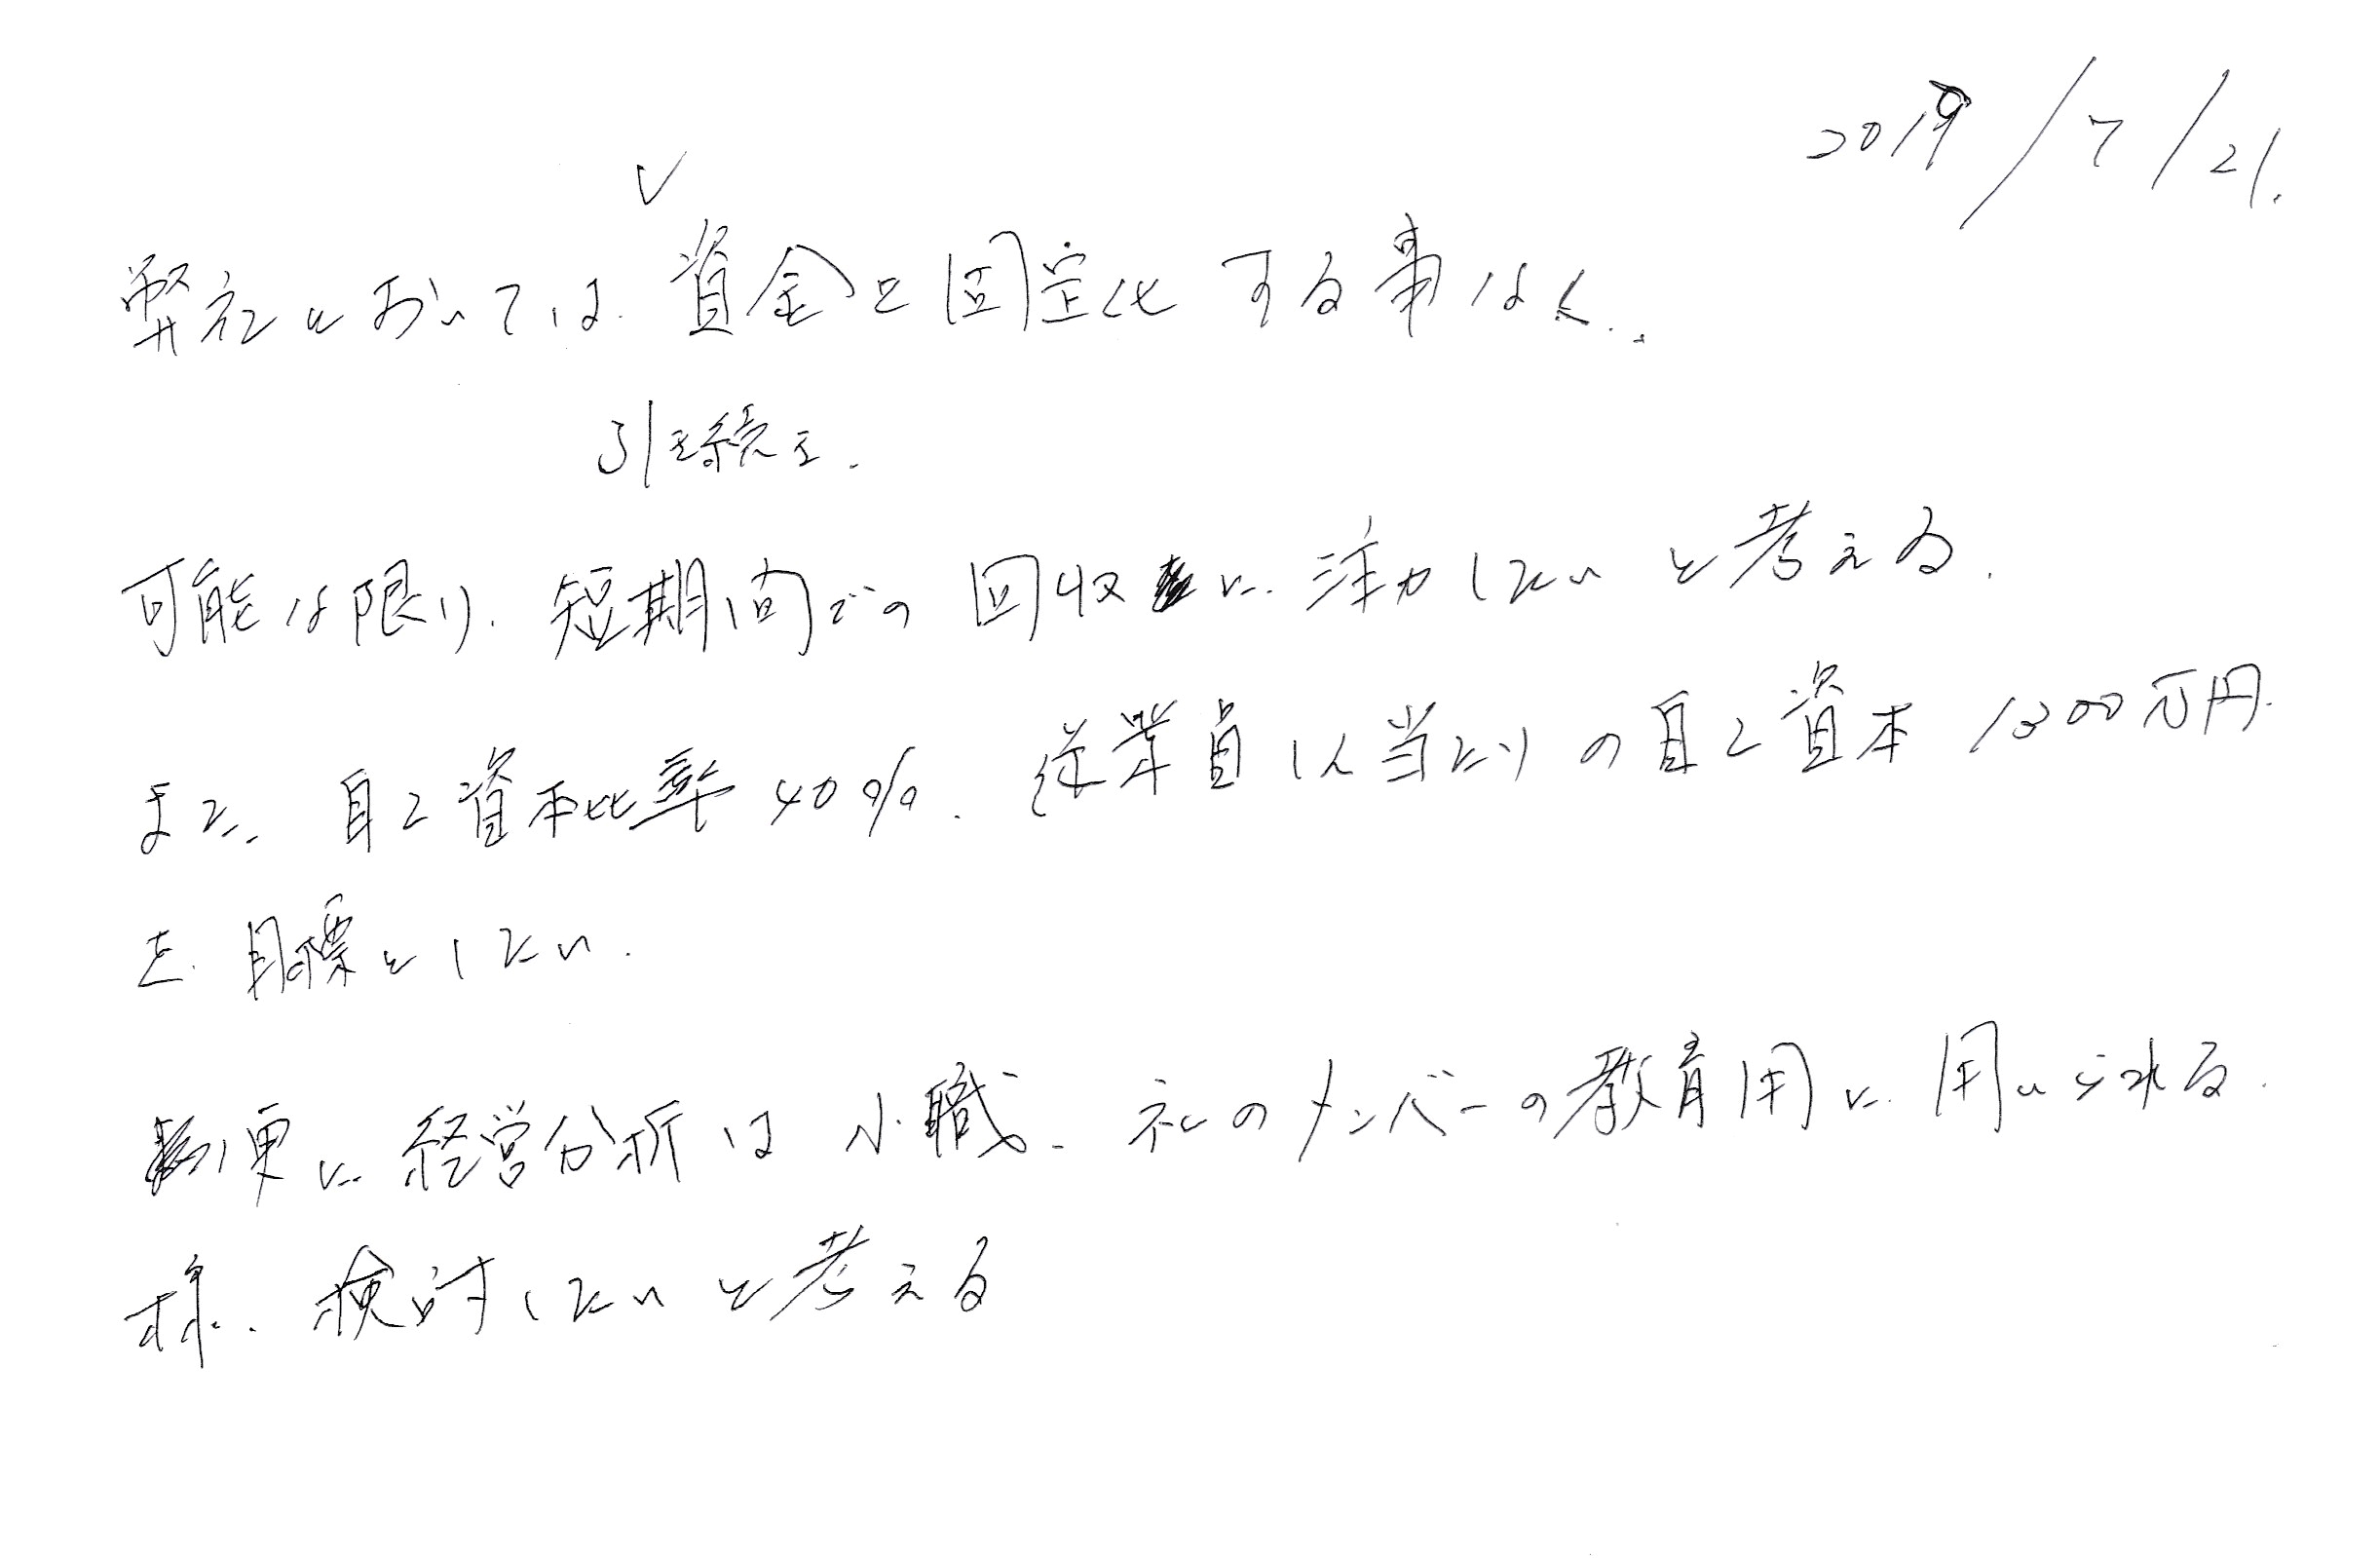 2019/7/21.
弊社においては、資金を固定化する事なく、
引き続き、
可能な限り、短期間での回収に、注力したいと考える。
また、自己資本比率40%、従業員1人当たりの自己資本1300万円
を、目標としたい。
更に、経営分析は小職、社のメンバーの教育用に、用いられる
様、検討したいと考える